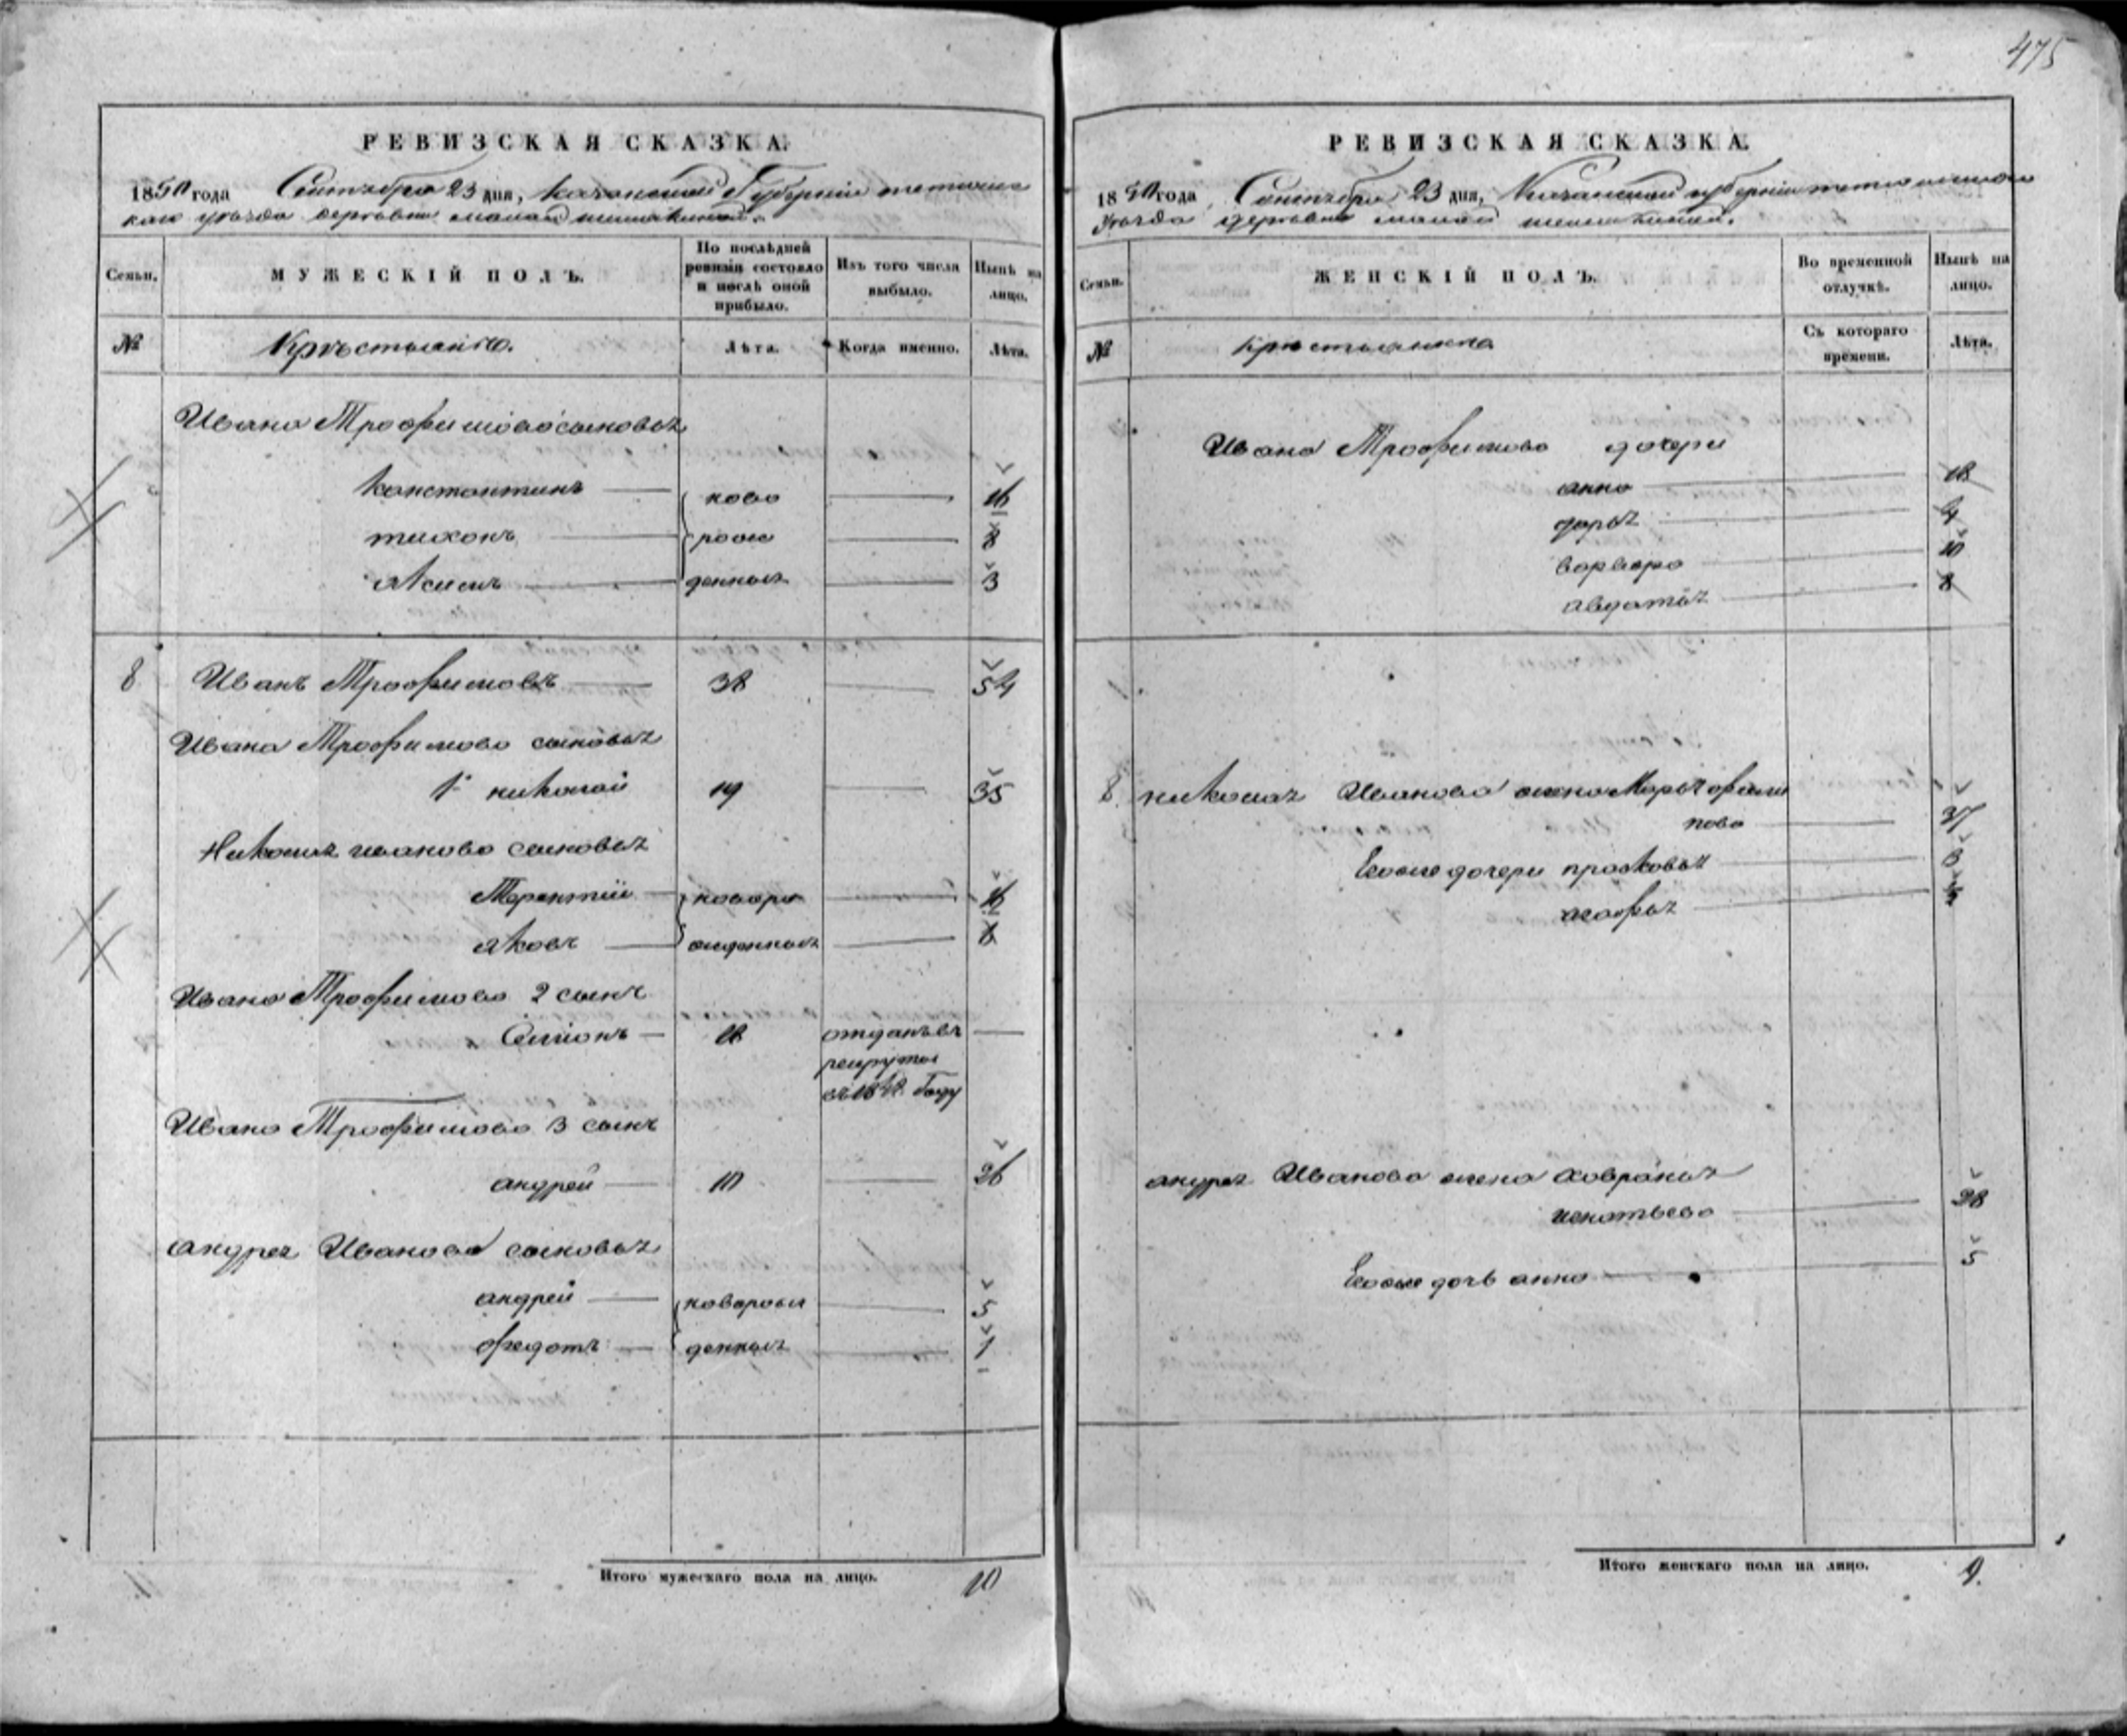 475
РЕВИЗСКАЯ СКАЗКА.
1850 года Сентября 23 дня, Казанской Губерніи тетюшс
каго уѣзда деревни малой шемякиной.
Семьи. МУЖЕСКІЙ ПОЛЪ. По послѣдней ревизіи состояло и послѣ оной прибыло. Изъ того числа выбыло. Нынѣ на лицо.
№ Лѣта. Когда именно. Лѣта.
Ивана Трофимова сыновья
Константинъ ново 16
тихонъ рож 8
Якимъ денныя 3
8 Иванъ Трофимовъ 38 54
Ивана Трофимова сыновья
1й николай 19 35
Николая иванова сыновья
Терентій новоро 16
яковъ жденныя 8
Ивана Трофимова 2 сынъ
Семіонъ 18 отданъ въ
рекруты
въ 1842 Году
Ивана Трофимова 3 сынъ
андрей 10 26
андрея Иванова сыновья
андрей новорож 5
федотъ денныя 1
Итого мужескаго пола на лицо. 10
РЕВИЗСКАЯ СКАЗКА.
1850 года Сентября 23 дня, Казанской губерніи
Уѣзда деревни малой
Семьи. ЖЕНСКІЙ ПОЛЪ. Во временной отлучкѣ. Нынѣ на лицо.
№ Съ котораго времени. Лѣта.
Ивана Трофимова дочери
анна 18
дарья
варвара 10
авдотья 8
8 николая Иванова жена Марья фили
пова 37
Евоже дочери прасковья
агафья
андрея Иванова жена Хавронья
игнатьева 28
Евоже дочь анна 5
Итого женскаго пола на лицо. 9.